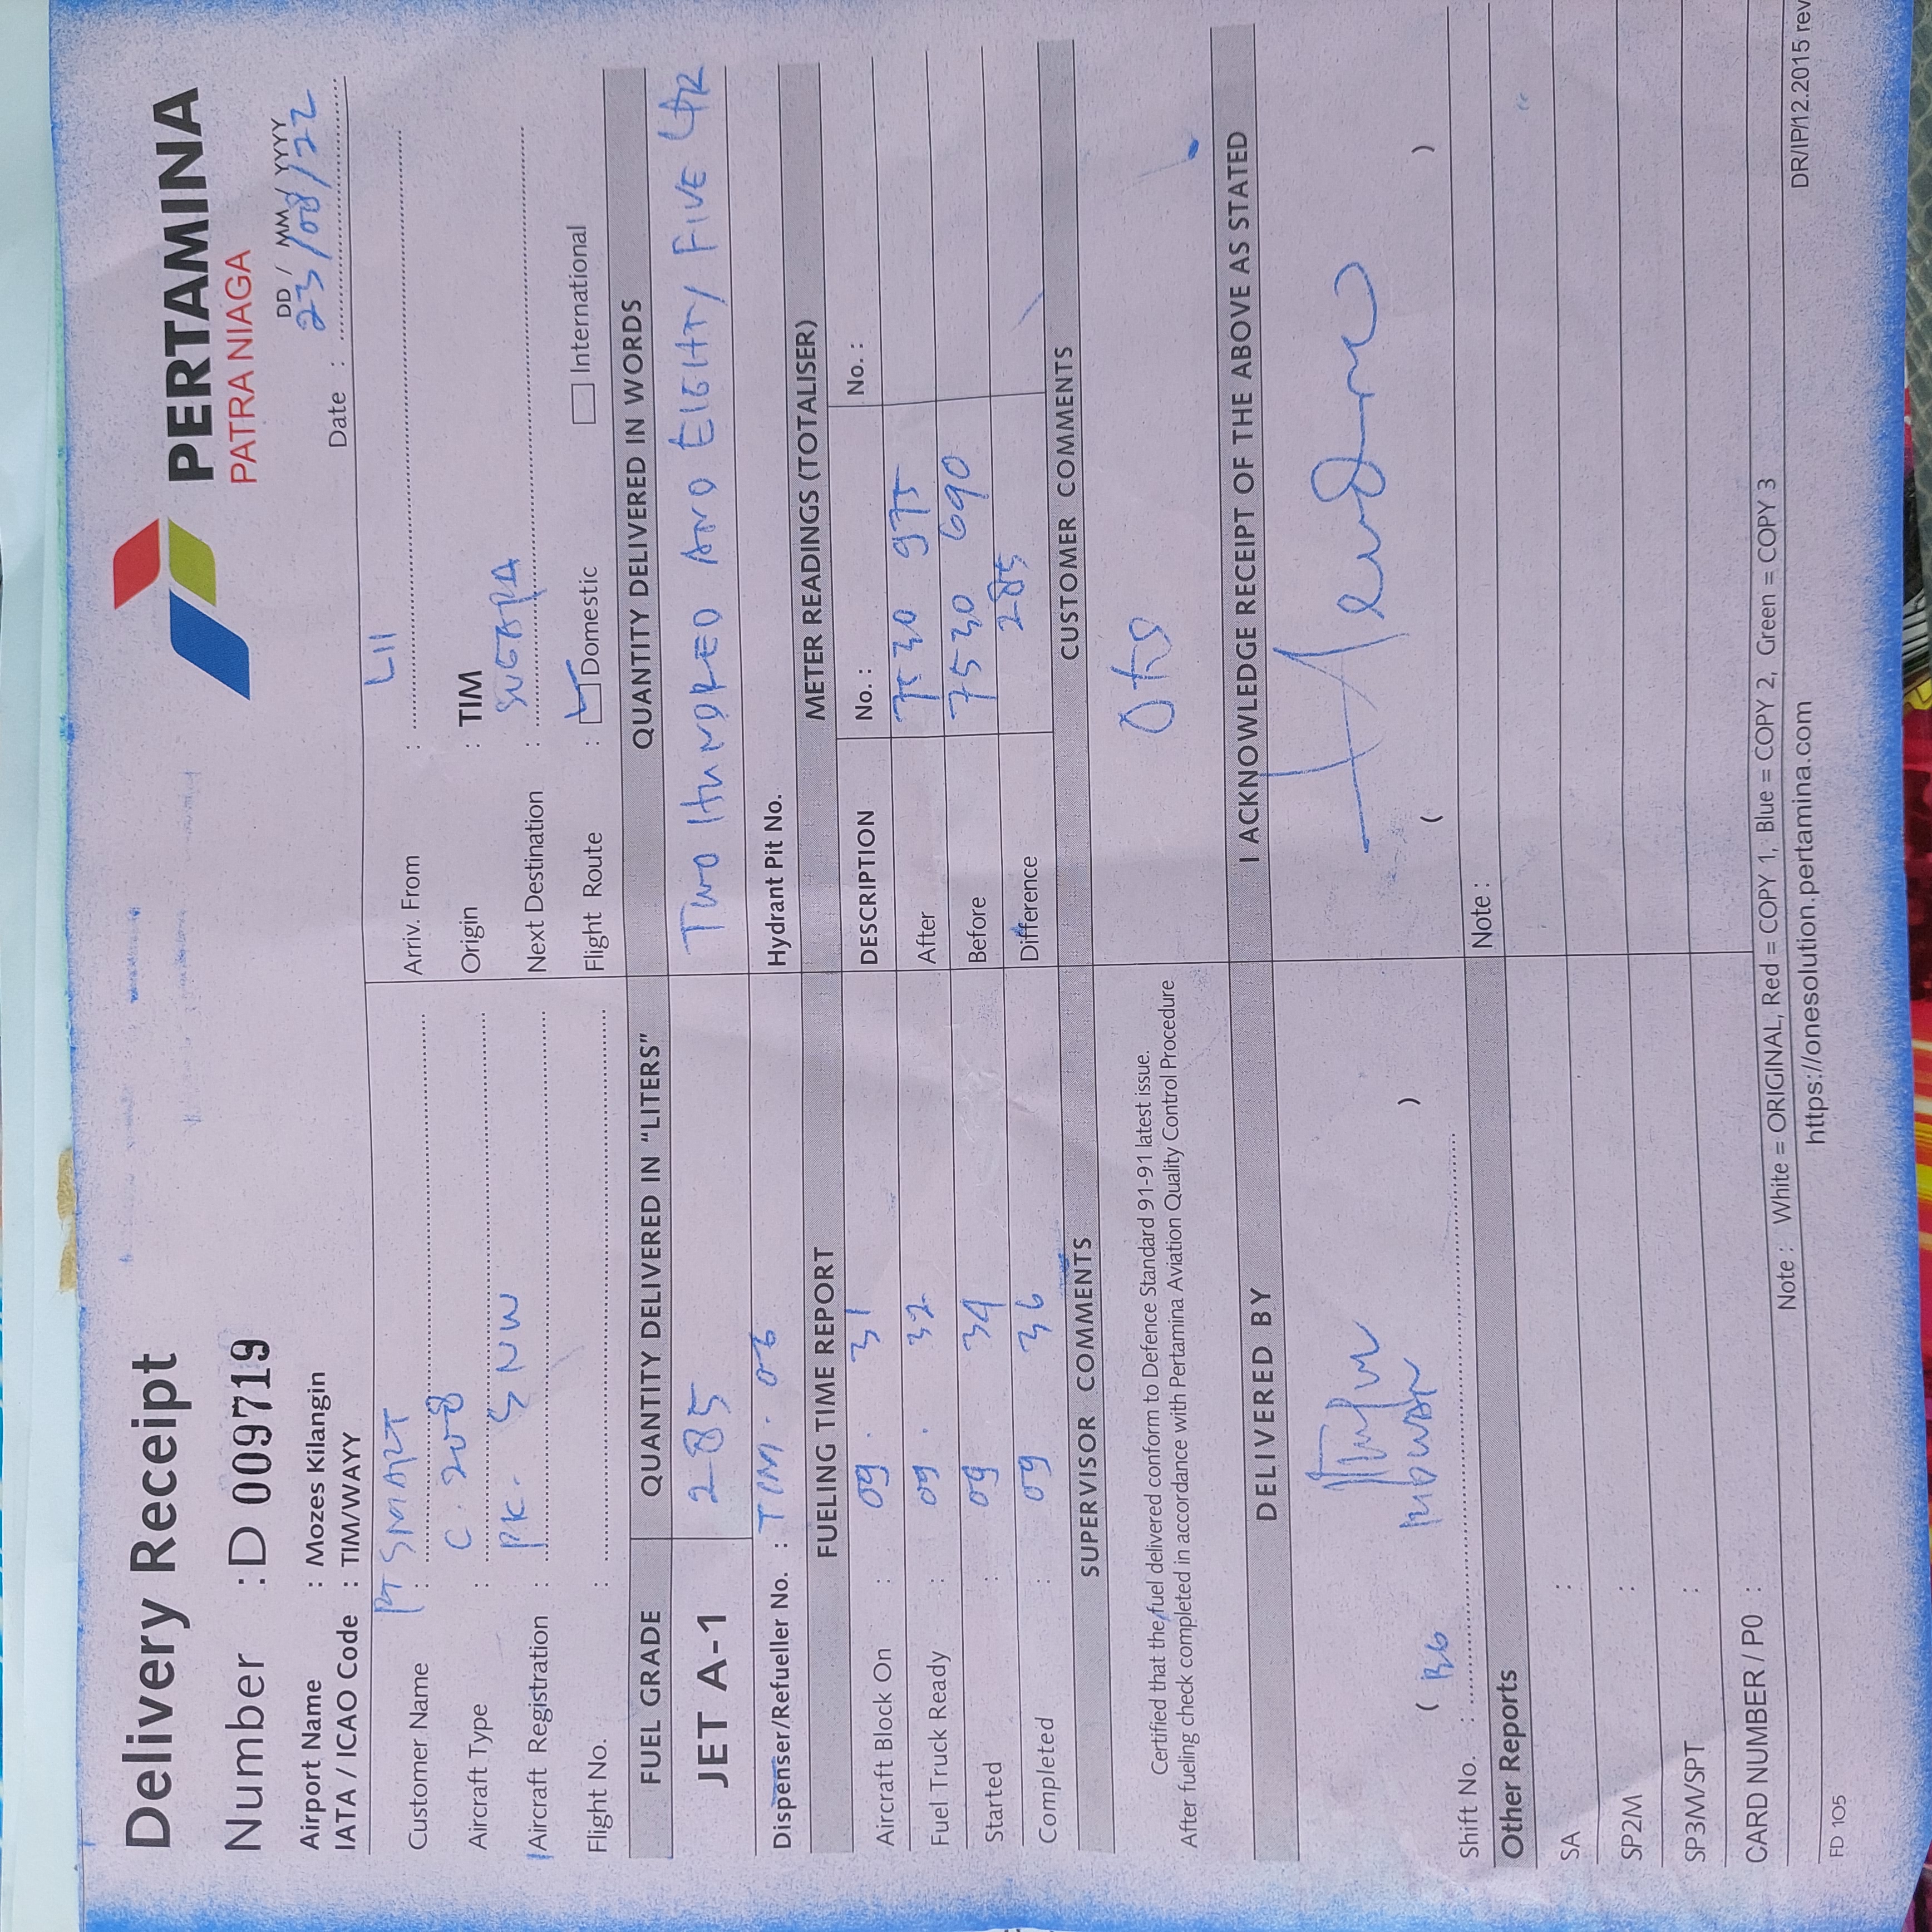 Delivery Receipt
PERTAMINA
PATRA NIAGA
Number : D 009719
DD / MM / YYYY
Date : 23/08/22
Airport Name : Mozes Kilangin
IATA / ICAO Code : TIM/WAYY
Customer Name : PT SMART
Arriv. From : L11
Aircraft Type : C. 208
Origin : TIM
Aircraft Registration : PK. SNW
Next Destination :
Flight No. :
Flight Route : Domestic International
FUEL GRADE QUANTITY DELIVERED IN "LITERS" QUANTITY DELIVERED IN WORDS
JET A-1 285 TWO HUNDRED AND EIGHTY FIVE LTR
Dispenser/Refueller No. : TIM. 06 Hydrant Pit No.
FUELING TIME REPORT METER READINGS (TOTALISER)
DESCRIPTION No. : No. :
Aircraft Block On : 09. 31
After 7530 975
Fuel Truck Ready : 09. 32
Before 7530 690
Started : 09 34
Difference 285
Completed : 09 36
SUPERVISOR COMMENTS CUSTOMER COMMENTS
Certified that the fuel delivered conform to Defence Standard 91-91 latest issue.
After fueling check completed in accordance with Pertamina Aviation Quality Control Procedure
DELIVERED BY I ACKNOWLEDGE RECEIPT OF THE ABOVE AS STATED
( ) ( )
Shift No. :
Other Reports Note :
SA :
SP2M :
SP3M/SPT :
CARD NUMBER / P0 :
Note : White = ORIGINAL, Red = COPY 1, Blue = COPY 2, Green = COPY 3
https://onesolution.pertamina.com
FD 105
DR/IP/12.2015 rev